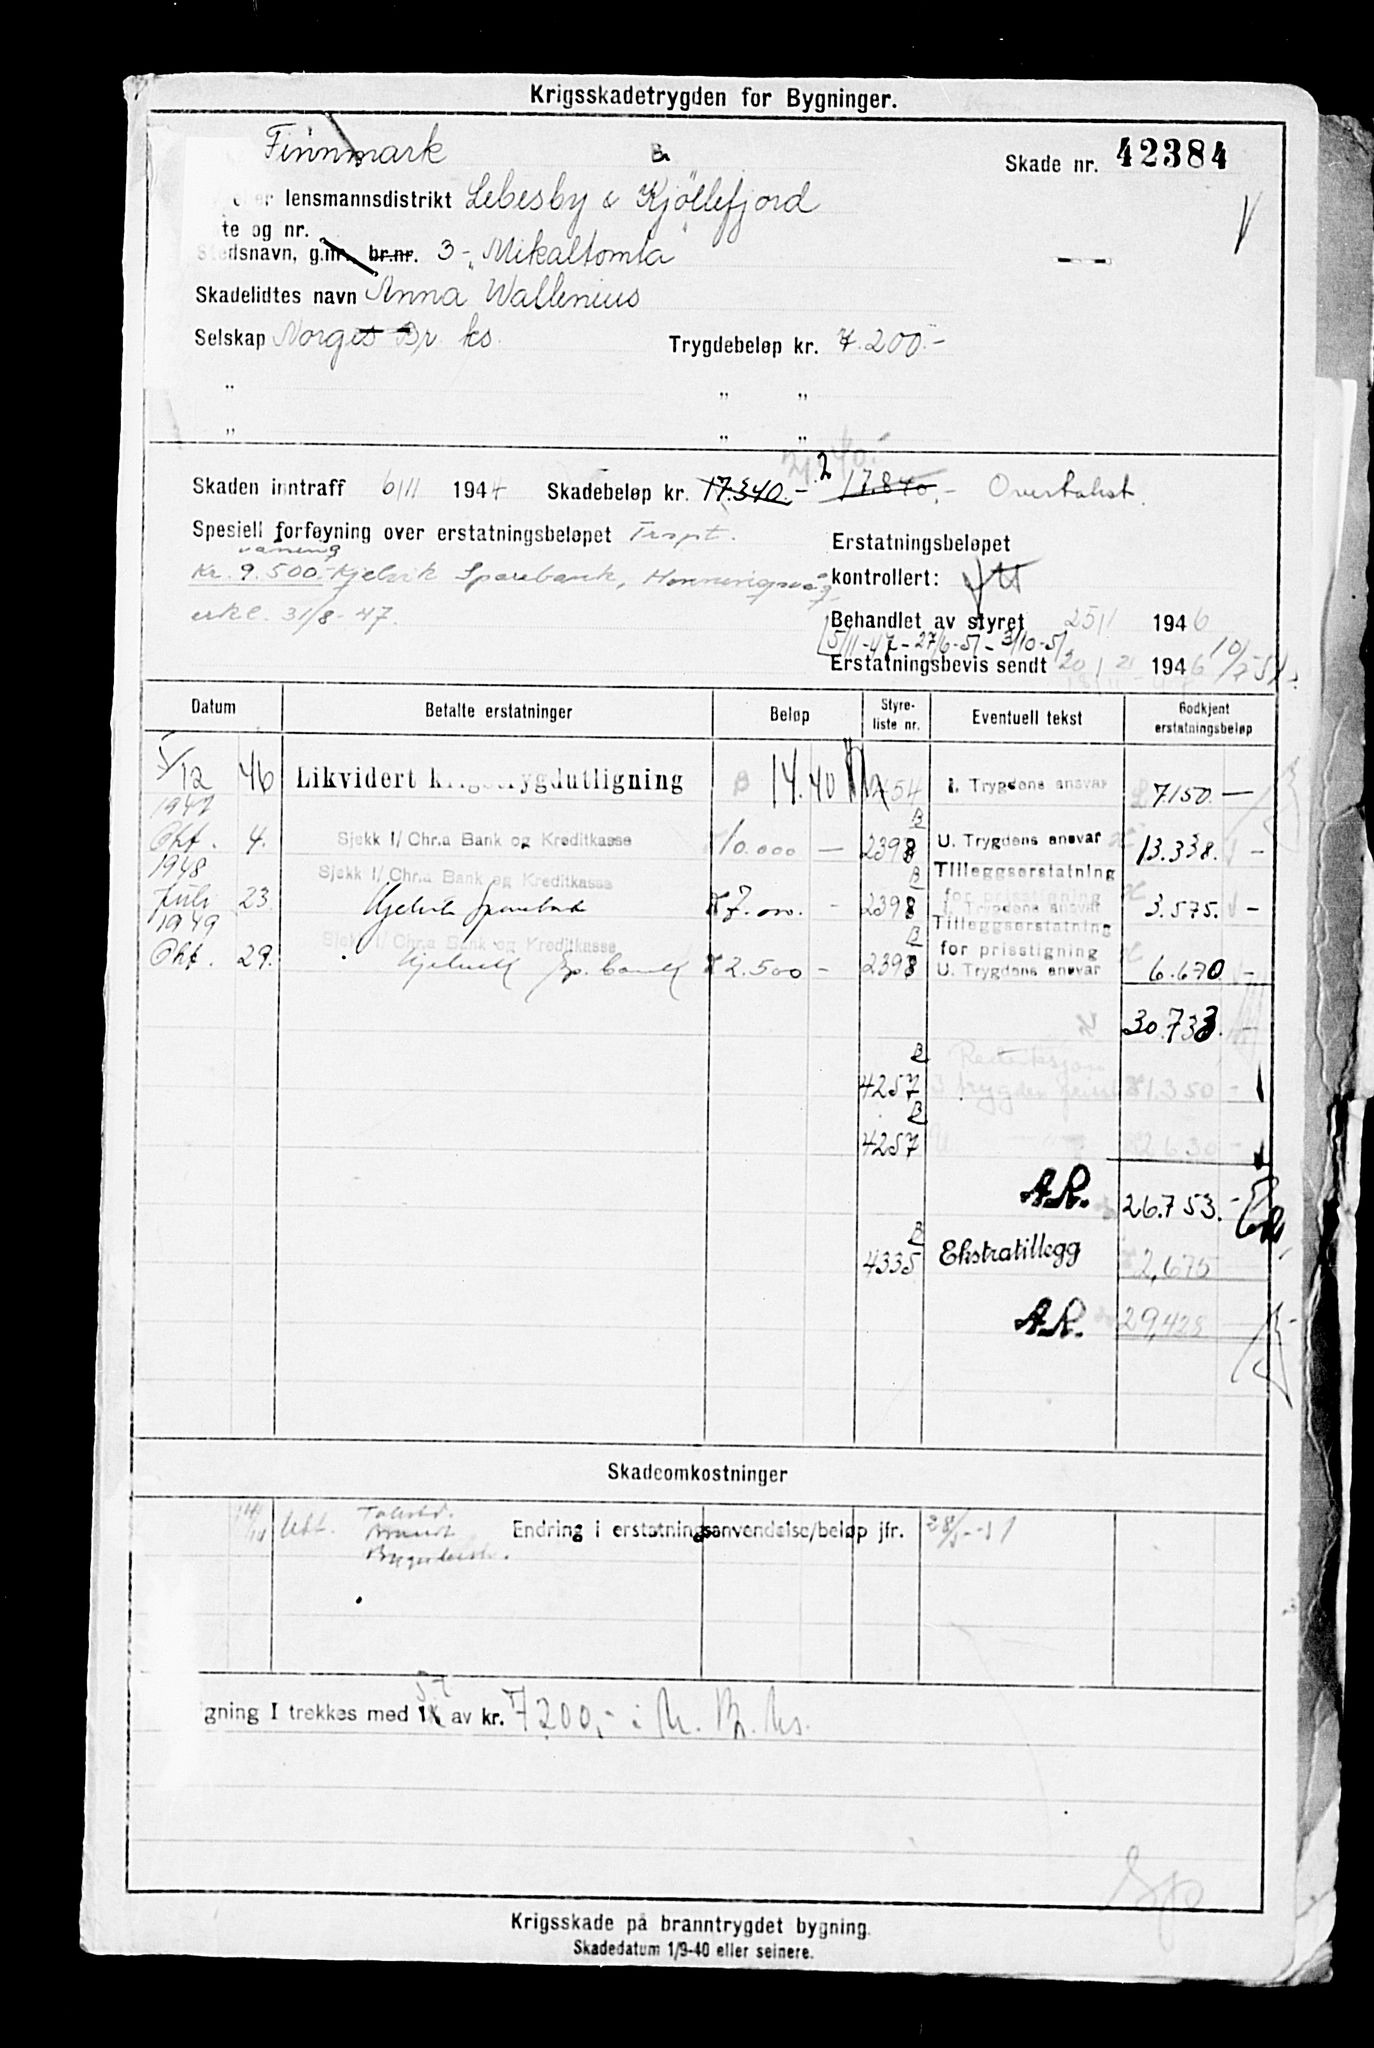 Krigsskadetrygden for Bygninger.
Finnmark
Skade nr. 42384
lensmannsdistrikt Lebesby & Kjöllefjord
te og nr.
Stedsnavn, g.nr. br.nr. 3 - "Mikaltomta"
Skadelidtes navn Anna Wallenius
Selskap Norges Br ks.
Trygdebeløp kr. 7.200.-
" " "
" " "
Skaden inntraff 6/11 1944 Skadebeløp kr. 17.340.- 17.840.- Overtakst.
Spesiell forføyning over erstatningsbeløpet
Erstatningsbeløpet
Kr. 9.500.- Kjelvik Sparebank, Honningsvåg
kontrollert:
erkl. 31/8-47.
Behandlet av styret 25/1 1946
5/11-47 - 27/6-51 - 3/10-51
Erstatningsbevis sendt 20/2 1946
Datum Betalte erstatninger Beløp Styre-liste nr. Eventuell tekst Godkjent erstatningsbeløp
5/12 46 Likvidert krigstrygdutligning 14.40 454 I. Trygdens ansvar 7.150.—
1947
Okt. 4. Sjekk 1/ Chr.a Bank og Kreditkasse 10.000 — B 2398 U. Trygdens ansvar 13.338.-
1948 Sjekk 1/ Chr.a Bank og Kreditkasse B Tilleggserstatning
Juli 23 Kjelvik Sparebank 7.000.- 2398 for prisstigning I. Trygdens ansvar 3.575.-
1949 Sjekk 1/ Chr.a Bank og Kreditkasse B Tilleggserstatning for prisstigning
Okt. 29. Kjelvik Sp.bank 2.500 - 2398 U. Trygdens ansvar 6.670 -
30.733.-
B Reduksjon
4257 I trygden 1.350 -
B
4257 2630 -
A.R. 26.753.-
B
4335 Ekstratillegg 2,675
A.R. 29,428
Skadeomkostninger
Takstd.
Endring i erstatningsanvendelse/beløp jfr. 28/5-51
igning I trekkes med av kr. 7200,- i N. Br. ks.
Krigsskade på branntrygdet bygning.
Skadedatum 1/9-40 eller seinere.